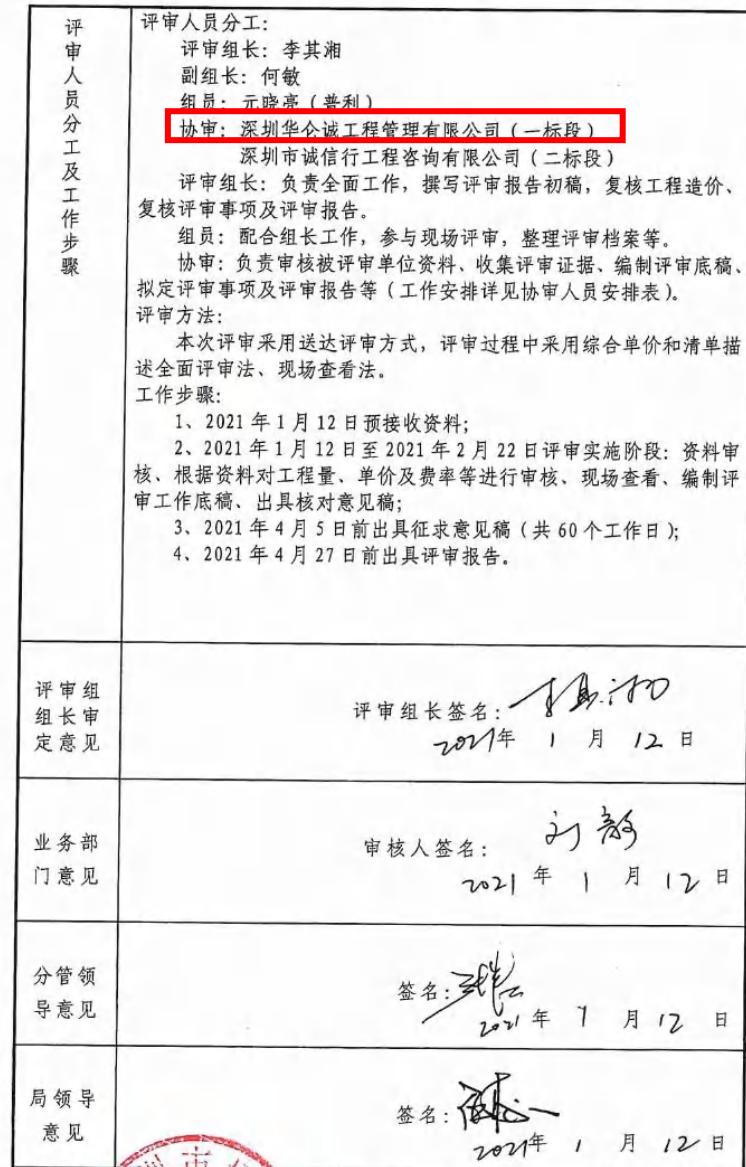 评审人员分工及工作步骤
评审人员分工:
评审组长: 李其湘
副组长: 何敏
组员: 元晓亮(普利)
协审: 深圳华仑诚工程管理有限公司(一标段)
深圳市诚信行工程咨询有限公司(二标段)
评审组长: 负责全面工作, 撰写评审报告初稿, 复核工程造价、
复核评审事项及评审报告。
组员: 配合组长工作, 参与现场评审, 整理评审档案等。
协审: 负责审核被评审单位资料、收集评审证据、编制评审底稿、
拟定评审事项及评审报告等(工作安排详见协审人员安排表)。
评审方法:
本次评审采用送达评审方式, 评审过程中采用综合单价和清单描
述全面评审法、现场查看法。
工作步骤:
1、2021年1月12日预接收资料;
2、2021年1月12日至2021年2月22日评审实施阶段: 资料审
核、根据资料对工程量、单价及费率等进行审核、现场查看、编制评
审工作底稿、出具核对意见稿;
3、2021年4月5日前出具征求意见稿(共60个工作日);
4、2021年4月27日前出具评审报告。
评审组
组长审
定意见
评审组长签名: 李其湘
2021年 1 月 12 日
业务部
门意见
审核人签名:
2021 年 1 月 12 日
分管领
导意见
签名:
2021 年 1 月 12 日
局领导
意见
签名:
2021年 1 月 12 日